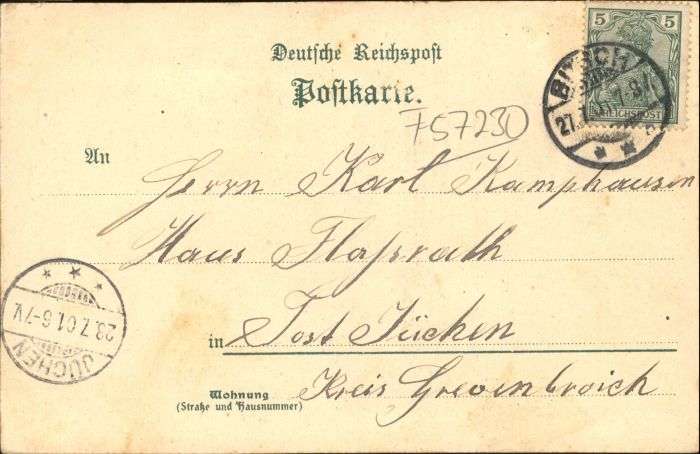 5 5
REICHSPOST
BITSCH
7-8V
27.
Deutsche Reichspost
Postkarte.
F57230
An
Herrn Karl Kamphausen
Haus Flaßrath
in Post Jüchen
Kreis Grevenbroich
Wohnung
(Straße und Hausnummer)
JÜCHEN
28.7.01.6-7V.